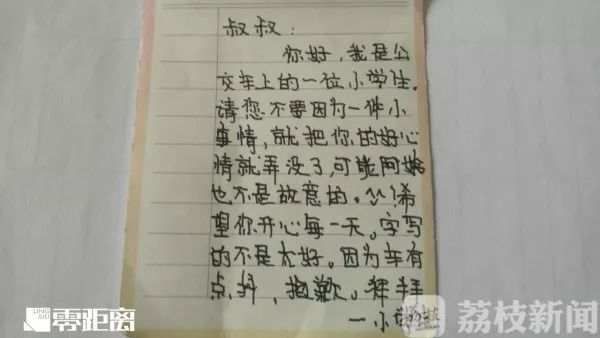 叔叔：
你好，我是公
交车上的一位小学生。
请您不要因为一件小
事情，就把你的好心
情就弄没了，可能阿姨
也不是故意的。^^!希
望你开心每一天。字写
的不是太好。因为车有
点抖，抱歉。
一小学生
LING
零距离
荔枝新闻